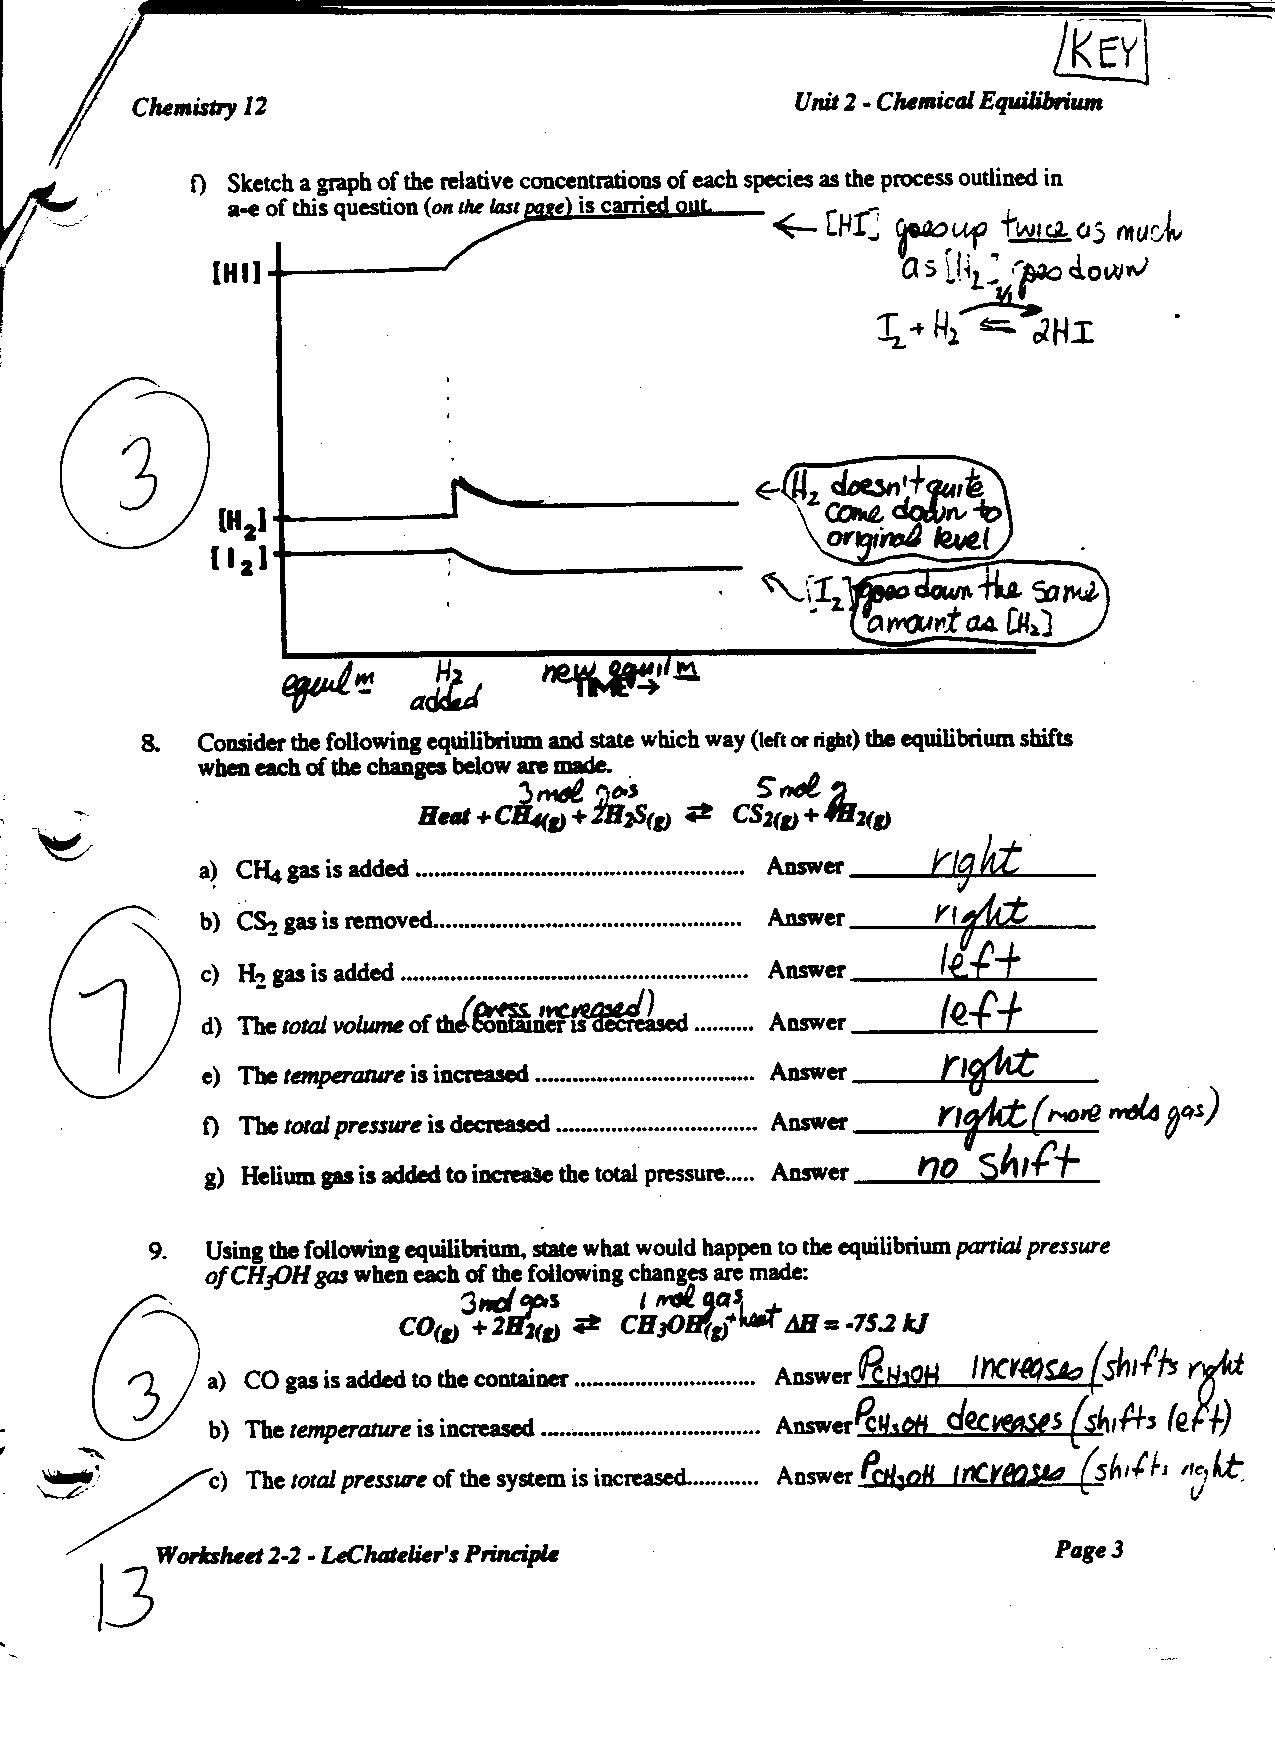 KEY
Chemistry 12 Unit 2 - Chemical Equilibrium
f) Sketch a graph of the relative concentrations of each species as the process outlined in
a-e of this question (on the last page) is carried out.
← [HI] goes up twice as much
[HI] as [H2] goes down
I2 + H2 ⇌ 2HI
3
← H2 doesn't quite
come down to
[H2] original level
[I2]
[I2] goes down the same
amount as [H2]
equil m H2 new equil m
added TIME →
8. Consider the following equilibrium and state which way (left or right) the equilibrium shifts
when each of the changes below are made.
3 mol gas 5 mol g
Heat + CH4(g) + 2H2S(g) ⇄ CS2(g) + 4H2(g)
a) CH4 gas is added ........ Answer right
b) CS2 gas is removed........ Answer right
c) H2 gas is added ........ Answer left
(press increased)
d) The total volume of the container is decreased .......... Answer left
7
e) The temperature is increased ........ Answer right
f) The total pressure is decreased ........ Answer right (more mols gas)
g) Helium gas is added to increase the total pressure..... Answer no shift
9. Using the following equilibrium, state what would happen to the equilibrium partial pressure
of CH3OH gas when each of the following changes are made:
3 mol gas 1 mol gas
CO(g) + 2H2(g) ⇄ CH3OH(g) + heat ΔH = -75.2 kJ
a) CO gas is added to the container ........ Answer PCH3OH increases (shifts right
3
b) The temperature is increased ........ Answer PCH3OH decreases (shifts left)
c) The total pressure of the system is increased............ Answer PCH3OH increases (shifts right
Worksheet 2-2 - LeChatelier's Principle Page 3
13